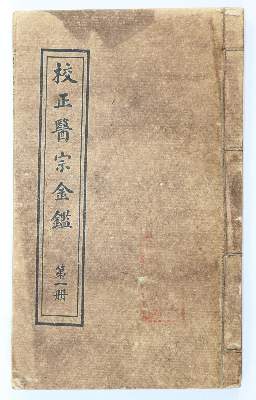 校正醫宗金鑑
第一册